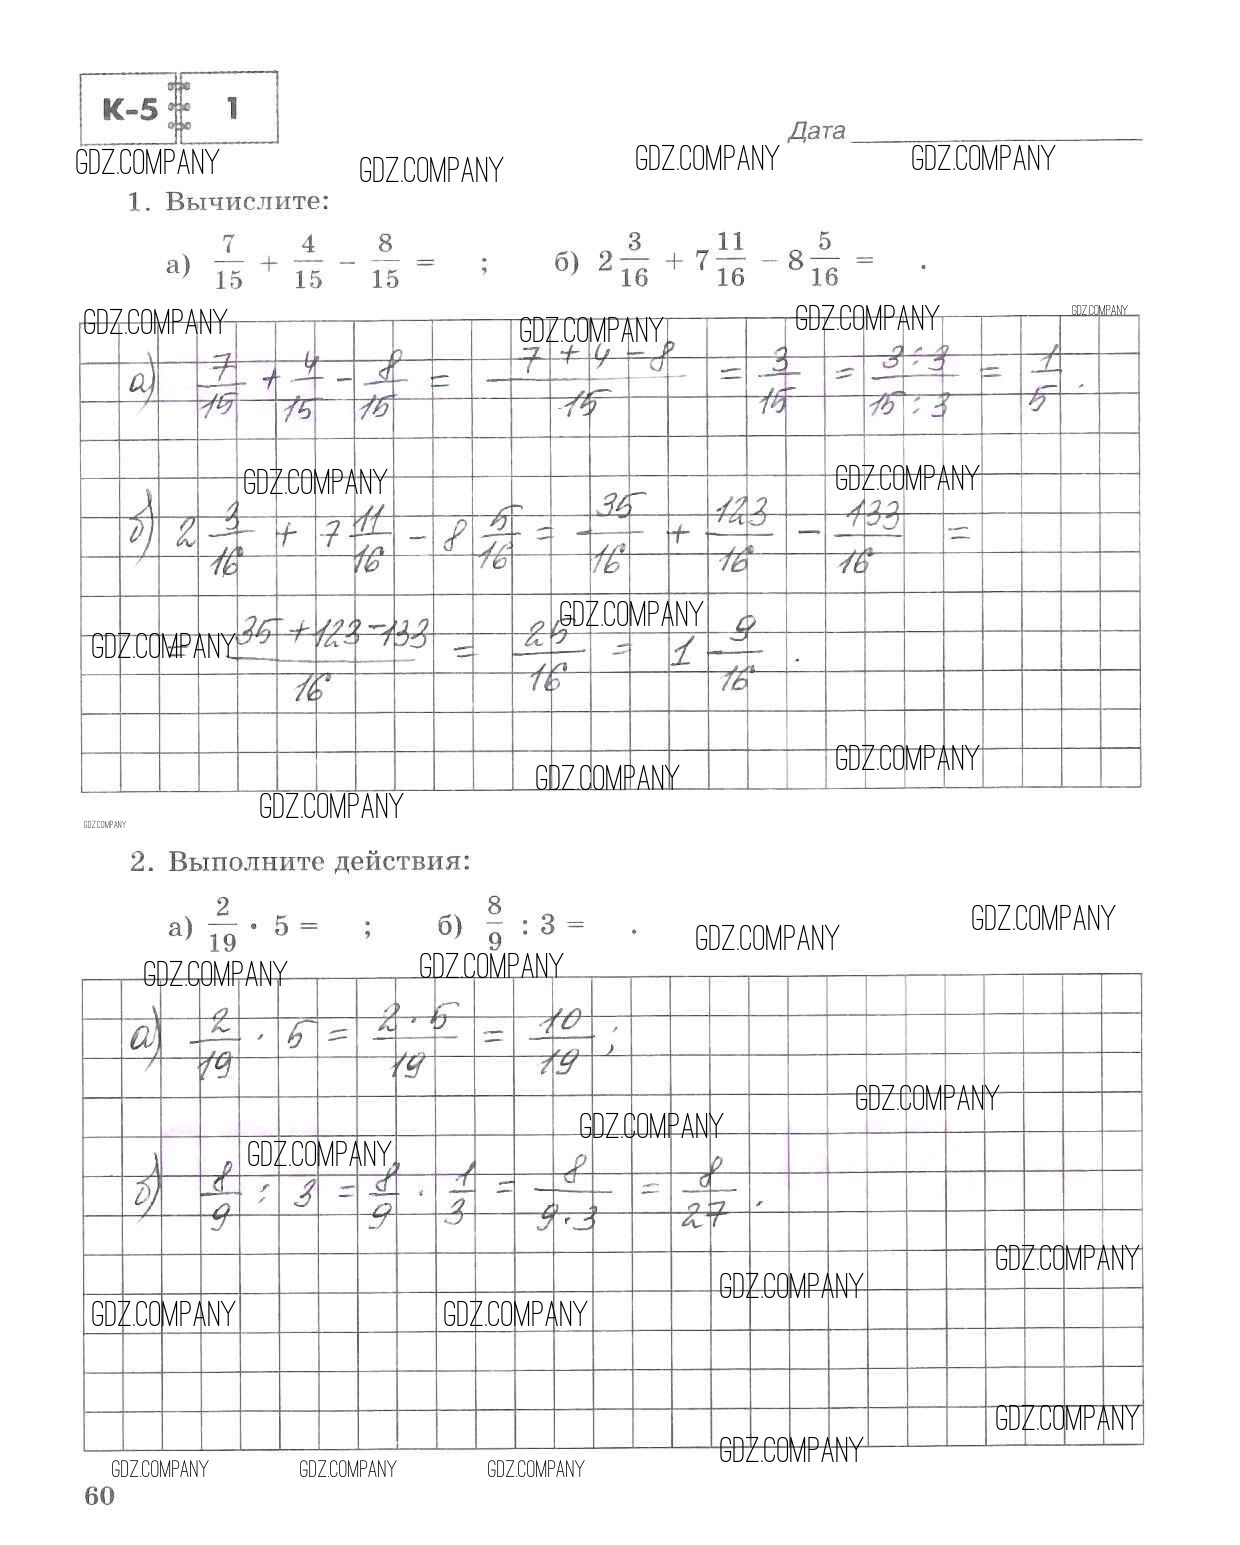 К-5 1
Дата
GDZ.COMPANY GDZ.COMPANY GDZ.COMPANY GDZ.COMPANY
1. Вычислите:
а) 7/15 + 4/15 − 8/15 = ; б) 2 3/16 + 7 11/16 − 8 5/16 = .
GDZ.COMPANY GDZ.COMPANY GDZ.COMPANY GDZ.COMPANY
а) 7/15 + 4/15 − 8/15 = (7 + 4 − 8)/15 = 3/15 = (3 : 3)/(15 : 3) = 1/5 .
GDZ.COMPANY GDZ.COMPANY
б) 2 3/16 + 7 11/16 − 8 5/16 = 35/16 + 123/16 − 133/16 =
GDZ.COMPANY GDZ.COMPANY
= (35 + 123 − 133)/16 = 25/16 = 1 9/16 .
GDZ.COMPANY GDZ.COMPANY
GDZ.COMPANY
GDZ.COMPANY
2. Выполните действия:
а) 2/19 · 5 = ; б) 8/9 : 3 = .
GDZ.COMPANY GDZ.COMPANY
GDZ.COMPANY GDZ.COMPANY
а) 2/19 · 5 = (2 · 5)/19 = 10/19 ;
GDZ.COMPANY GDZ.COMPANY
GDZ.COMPANY
б) 8/9 : 3 = 8/9 · 1/3 = 8/(9 · 3) = 8/27 .
GDZ.COMPANY GDZ.COMPANY
GDZ.COMPANY GDZ.COMPANY
GDZ.COMPANY GDZ.COMPANY
GDZ.COMPANY GDZ.COMPANY GDZ.COMPANY
60